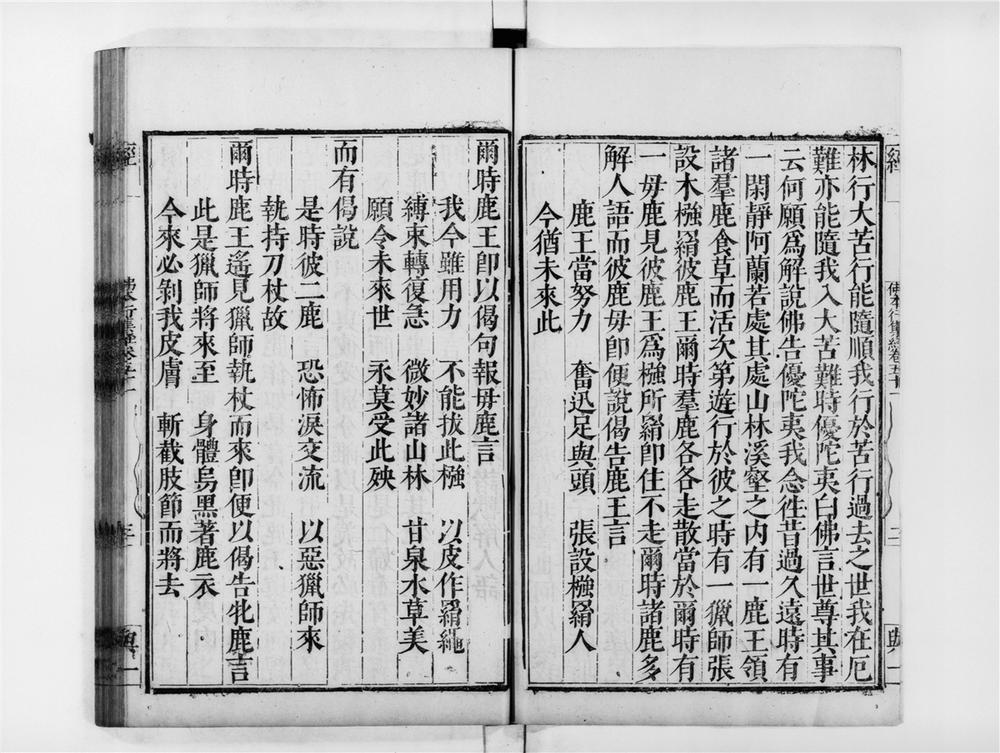 林行大苦行能隨順我行於苦行過去之世我在厄
難亦能隨我入大苦難時優陀夷白佛言世尊其事
云何願為解說佛告優陀夷我念徃昔過久遠時有
一閑靜阿蘭若處其處山林溪壑之内有一鹿王領
諸羣鹿食草而活次第遊行於彼之時有一獵師張
設木橛羂彼鹿王爾時羣鹿各各走散當於爾時有
一母鹿見彼鹿王為橛所羂即住不走爾時諸鹿多
解人語而彼鹿母即便說偈告鹿王言
鹿王當努力　奮迅足與頭　張設橛羂人
今猶未來此
爾時鹿王即以偈句報母鹿言
我今雖用力　不能拔此橛　以皮作羂繩
縛束轉復急　微妙諸山林　甘泉水草美
願令未來世　永莫受此殃
而有偈說
是時彼二鹿　恐怖淚交流　以惡獵師來
執持刀杖故
爾時鹿王遙見獵師執杖而來即便以偈告牝鹿言
此是獵師將來至　身體烏黑著鹿衣
今來必剝我皮膚　斬截肢節而將去
經
佛本行集經卷五十一
三
典一